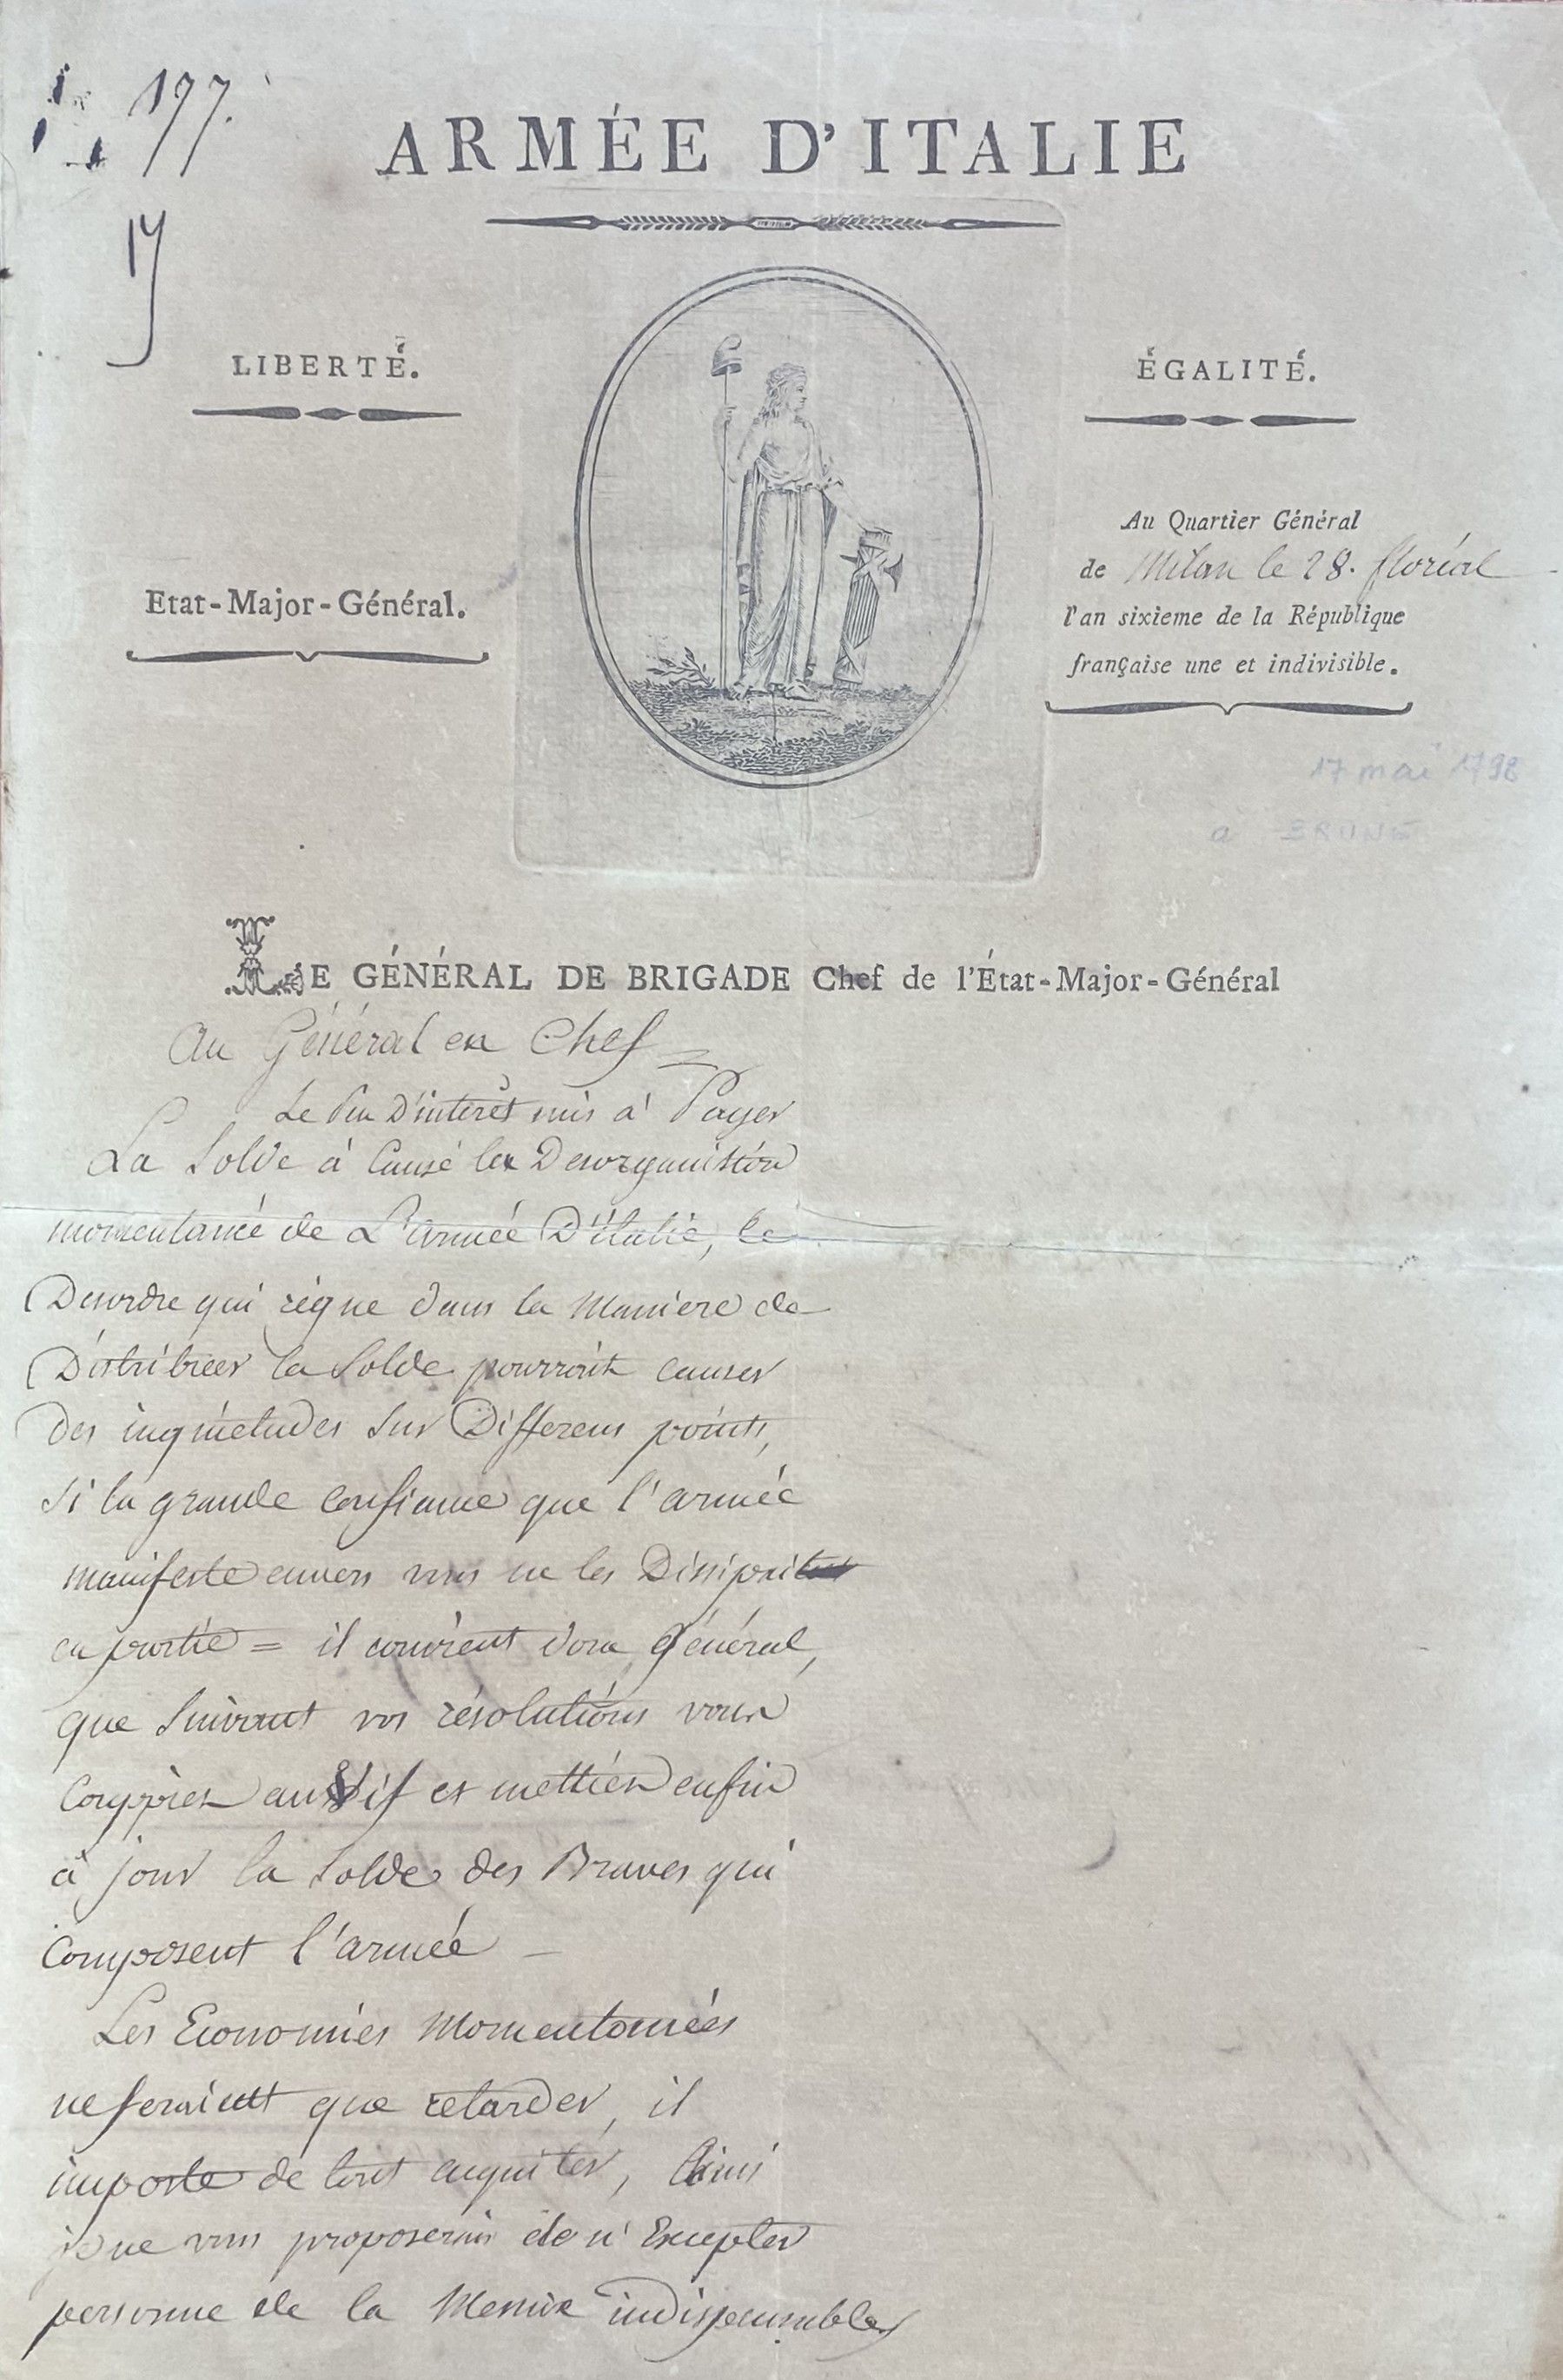 197.
17
ARMÉE D'ITALIE
LIBERTÉ.
ÉGALITÉ.
Etat-Major-Général.
Au Quartier Général
de Milan le 28. floréal
l'an sixieme de la République
française une et indivisible.
17 mai 1798
a BRUNE
LE GÉNÉRAL DE BRIGADE Chef de l'État-Major-Général
Au Général en Chef
Le peu D'interêt mis à Payer
La Solde à Causé la Desorganistion
momentanée de L'armée D'italie, le
Desordre qui règne dans la Maniere de
Distribuer la Solde pourroit causer
Des inquietudes Sur Differens points,
Si la grande confiance que l'armée
manifeste envers vous ne les Dissipait
en partie = il convient donc Général,
que Suivant vos résolutions vous
Coupiés au Vif et mettiés enfin
à jour la Solde des Braves qui
Composent l'armée
Les Economies Momentanées
ne feraient que retarder, il
importe de tout acquiter, Ainsi
je ne vous proposerais de n'Excepter
personne de la Mesure indispensable